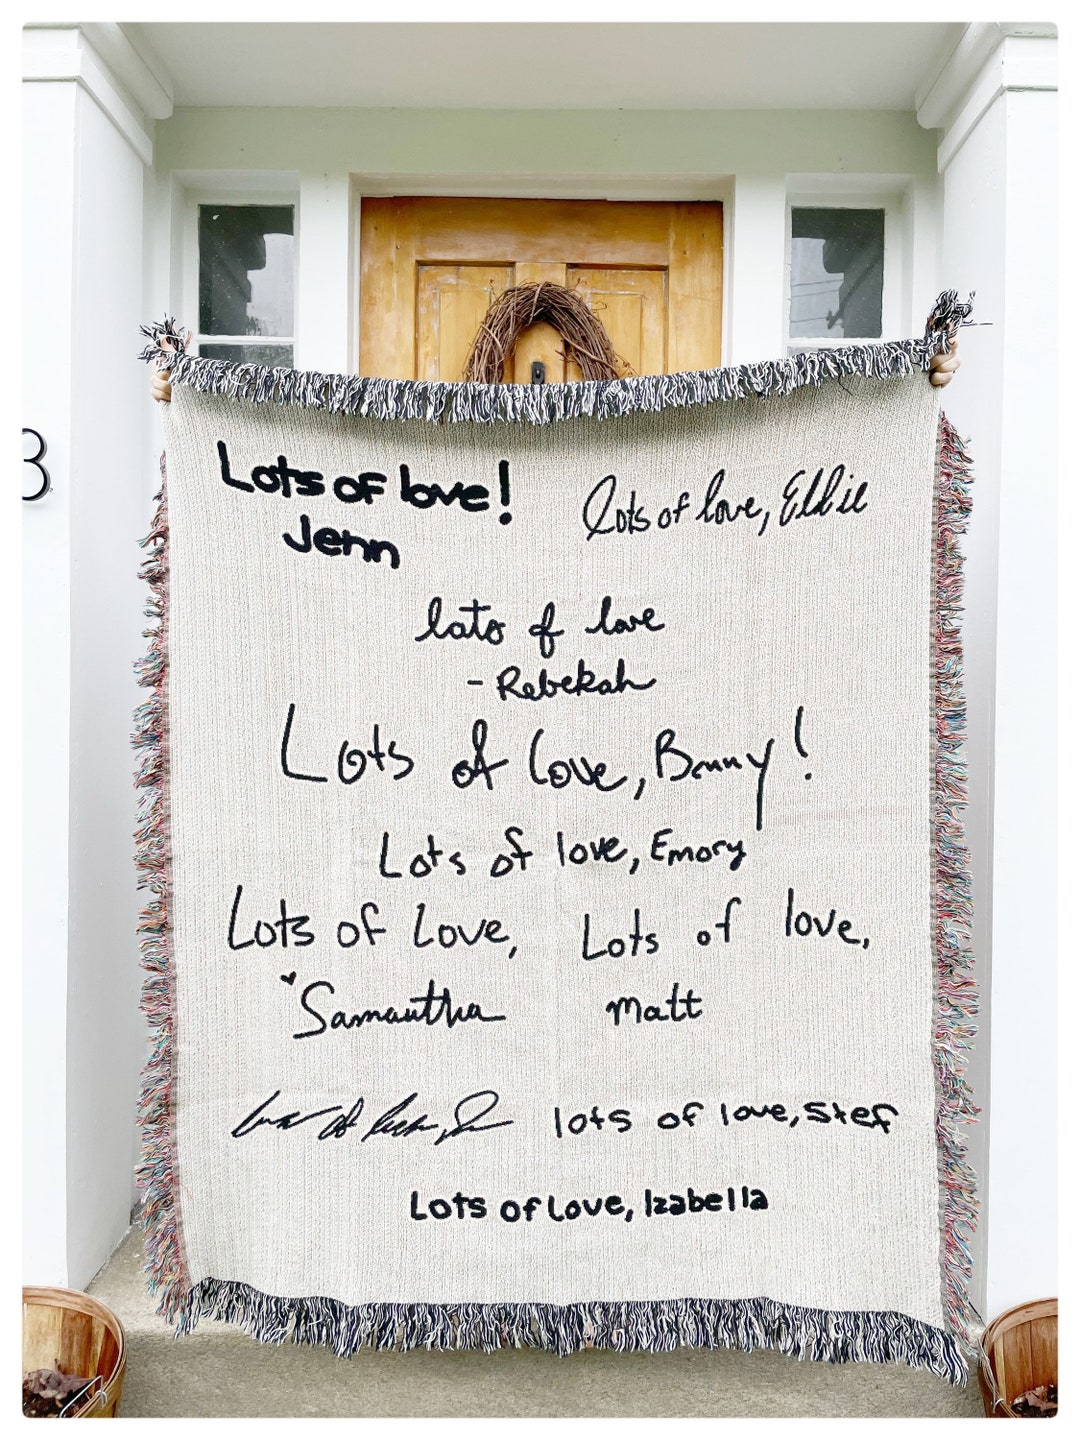 Lots of love!
Jenn
lots of love, Ellie
lots of love
- Rebekah
Lots of love, Benny!
Lots of love, Emory
Lots of love,
Samantha
Lots of love,
Matt
lots of love, Stef
Lots of love, Izabella
3